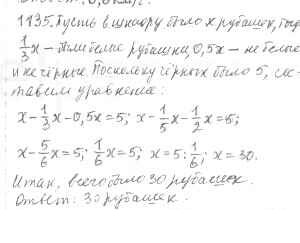 1135. Пусть в шкафу было x рубашек, тогда
1/3 x – были белые рубашки, 0,5x – не белые
и не чёрные. Поскольку чёрных было 5, сос-
тавим уравнение:
x - 1/3 x - 0,5x = 5; x - 1/3 x - 1/2 x = 5;
x - 5/6 x = 5; 1/6 x = 5; x = 5 : 1/6; x = 30.
Итак, всего было 30 рубашек.
Ответ: 30 рубашек.